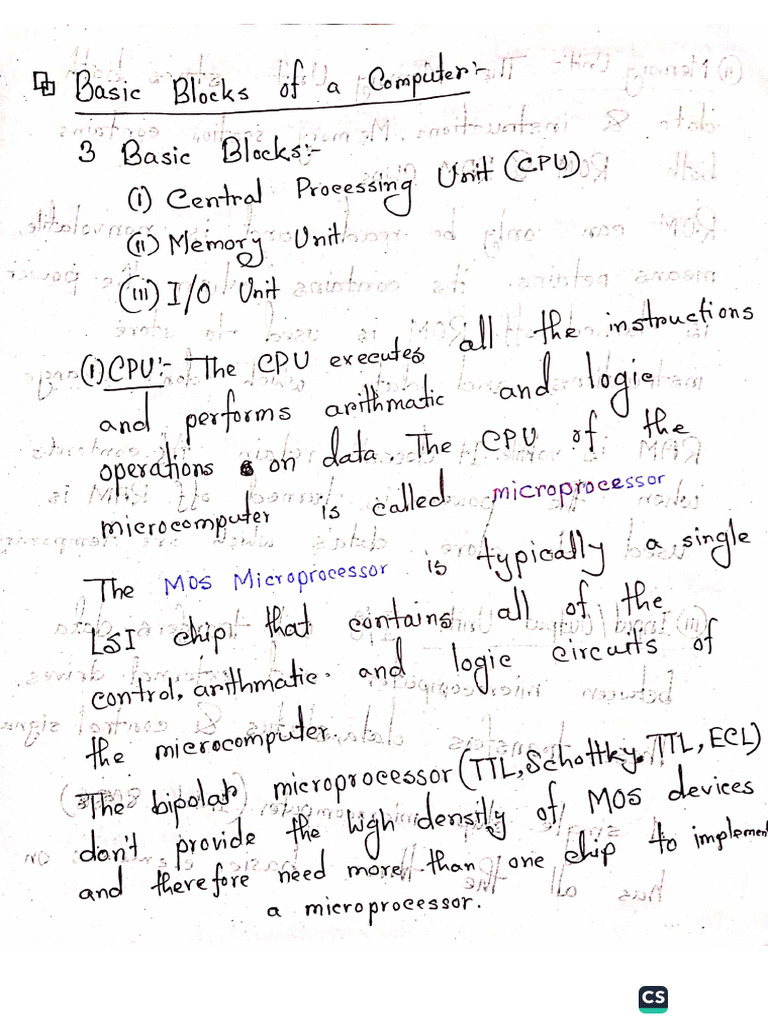 Basic Blocks of a Computer:-
3 Basic Blocks:-
(i) Central Processing Unit (CPU)
(ii) Memory Unit
(iii) I/O Unit
(i) CPU:- The CPU executes all the instructions
and performs arithmatic and logic
operations on data. The CPU of the
microcomputer is called microprocessor
The MOS Microprocessor is typically a single
LSI chip that contains all of the
control, arithmatic and logic circuits of
the microcomputer.
The bipolar microprocessor (TTL, Schottky TTL, ECL)
don't provide the high density of MOS devices
and therefore need more than one chip to implement
a microprocessor.
CS